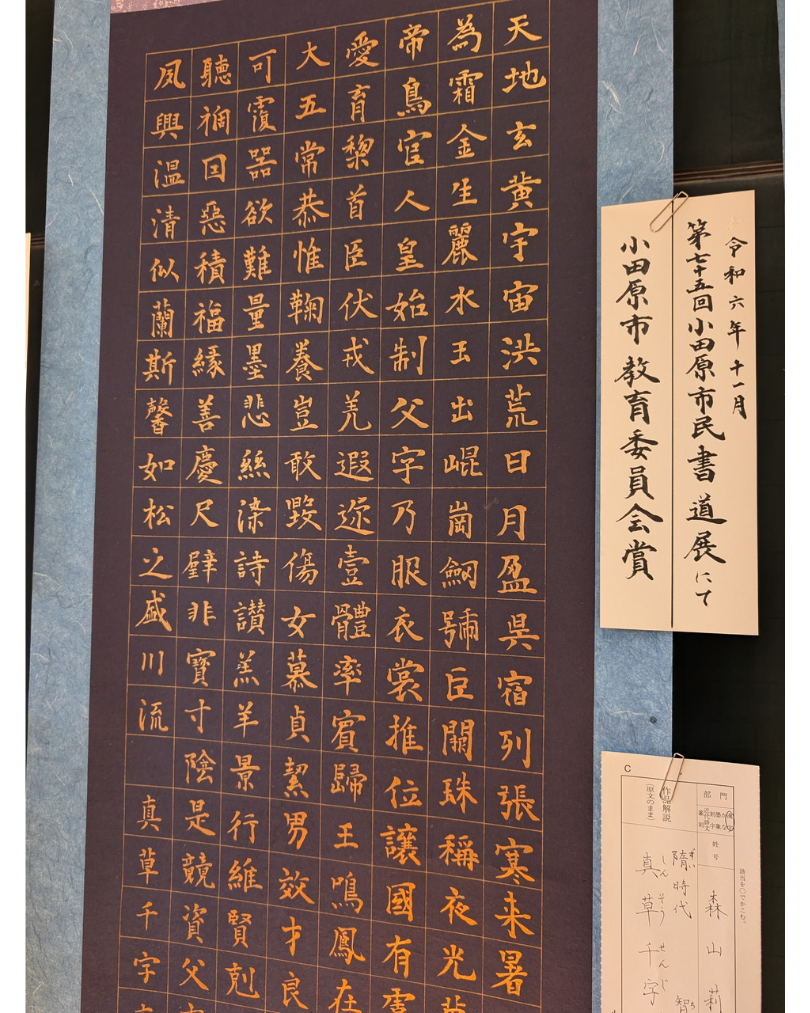 天地玄黄宇宙洪荒日月盈昃宿列張寒来暑
為霜金生麗水玉出崐崗劒號巨闕珠稱夜光
帝鳥官人皇始制文字乃服衣裳推位讓國有
愛育黎首臣伏戎羌遐迩壹體率賓歸王鳴鳳在
大五常恭惟鞠養豈敢毀傷女慕貞絜男效才良
可覆器欲難量墨悲絲染詩讃羔羊景行維賢剋
聽禍因惡積福緣善慶尺璧非寶寸陰是競資父
夙興温清似蘭斯馨如松之盛川流
真草千字
令和六年十一月
第七十五回小田原市民書道展にて
小田原市教育委員会賞
C
該当を○でかこむ。
部門
姓号 森山莉
隋時代 智
しんそうせんじ
真草千字
作品解説
(原文のまま)